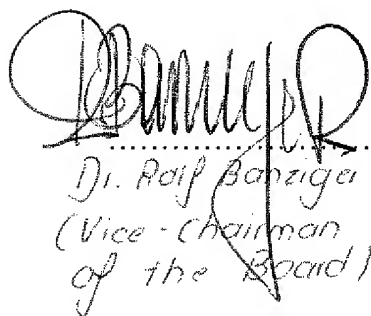 Dr. Rolf Banziger
(Vice-Chairman
of the Board)